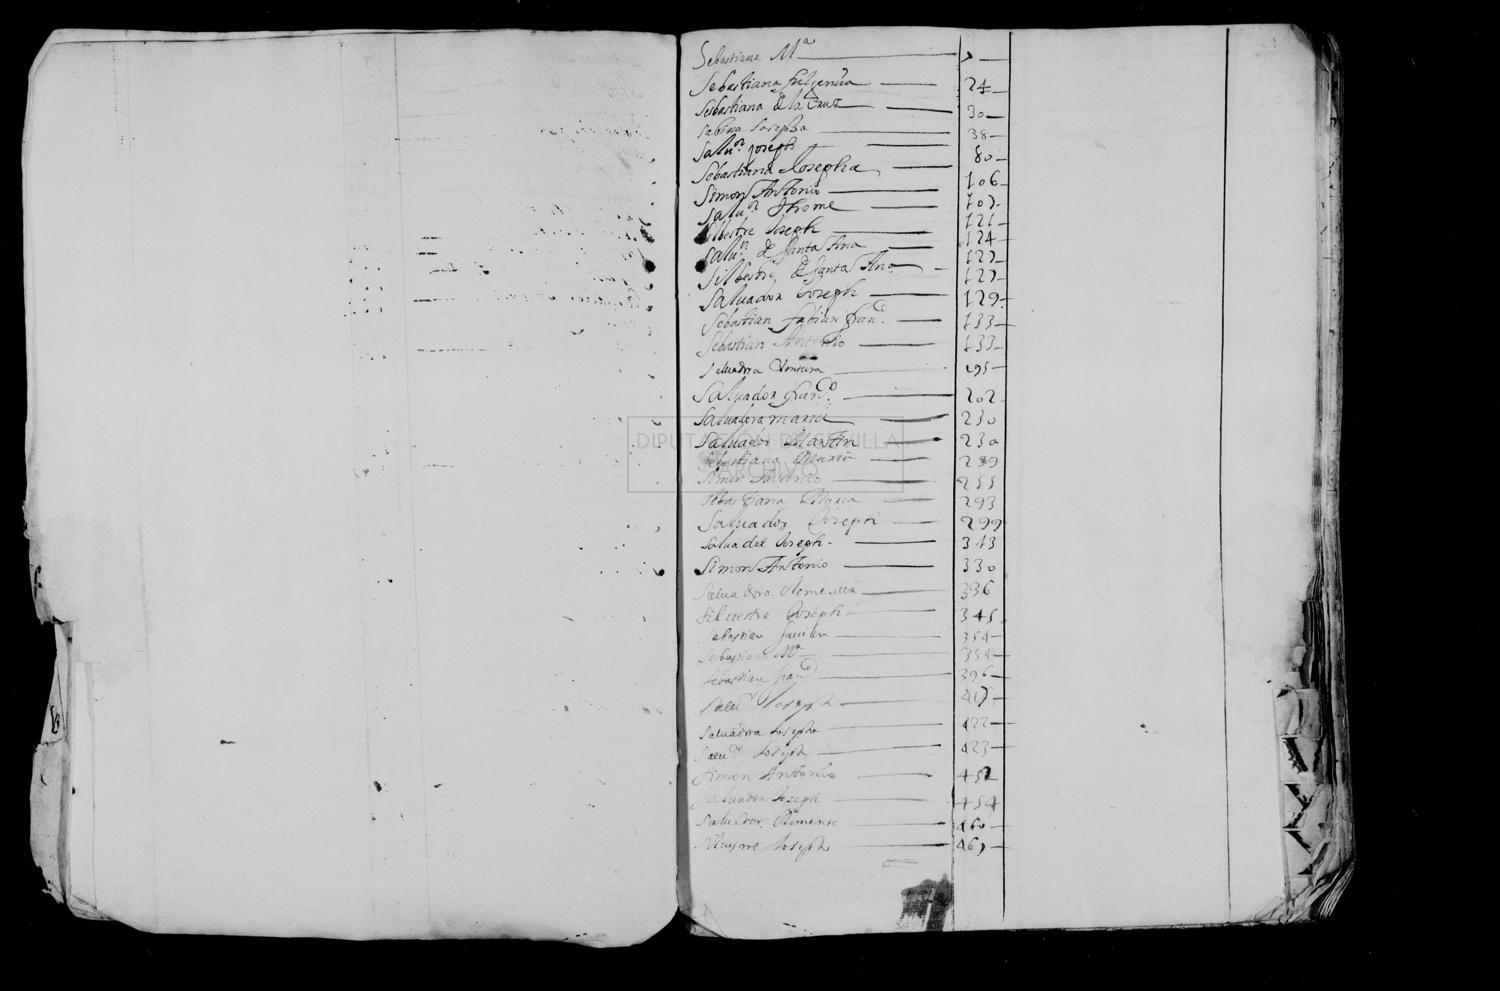 Sebastiana Mª 7
Sebastiana fulgencia 24
Sebastiana de la Cruz 30
Sabina Josepha 38
Salu.ʳ joseph 80
Sebastiana Josepha 106
Simon Antonio 107
Salu.ʳ Jhrome 121
Silbestre Joseph 124
Salu.ʳ de Santa Ana 127
Silbestre de Santa Ana 127
Saluador Joseph 129
Sebastian fabian fran.ᶜᵒ 133
Sebastian Antonio 133
Saluadora Ventura 195
Saluador fran.ᶜᵒ 202
Saluadora maria 230
Saluador Martin 230
Sebastiana Maria 239
Simon 255
Sebastiana Maria 293
Saluador Joseph 299
Saluador Joseph 313
Simon Antonio 330
Saluadora Clemencia 336
Siluestre Joseph 345
Sebastian 354
Sebastiana Mª 354
Sebastian fran.ᶜᵒ 396
Salu.ʳ Joseph 417
Saluadora Josepha 422
Salu.ʳ Joseph 423
Simon Antonio 452
Saluador Joseph 454
Saluador Clemente 460
Joseph 467
DIPUTACIÓN DE SEVILLA
ARCHIVO